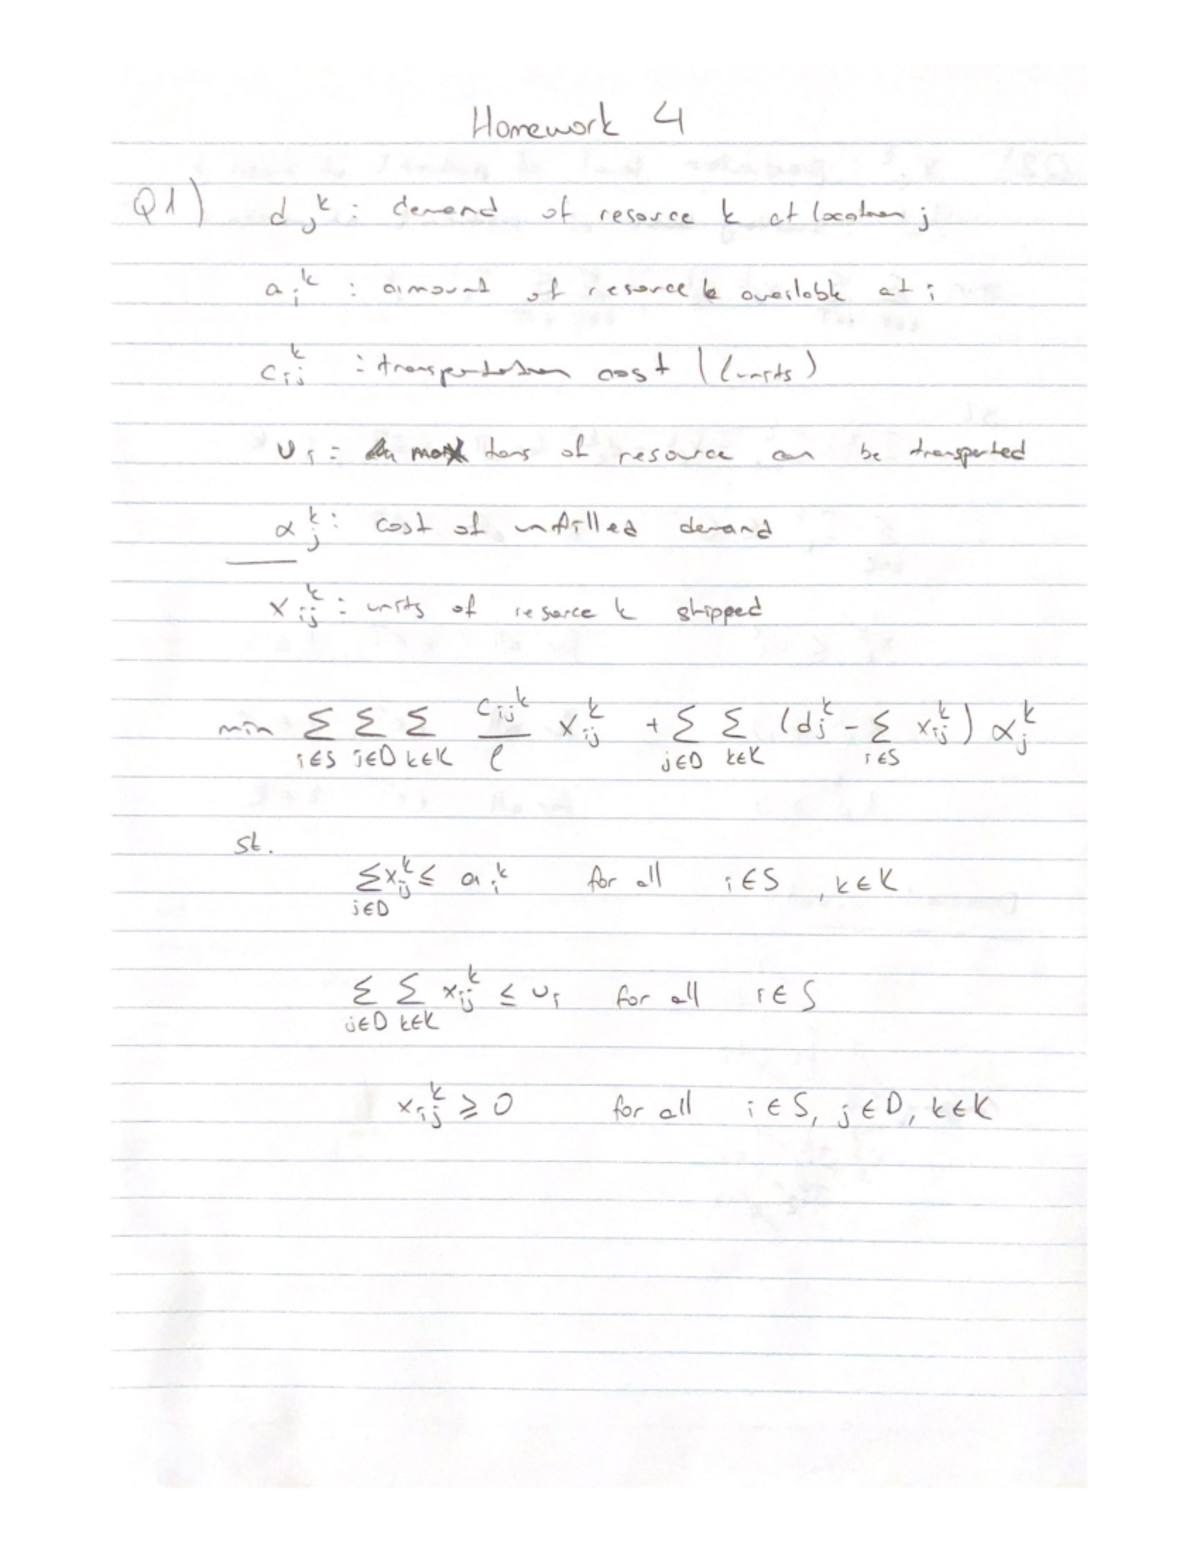 Homework 4
Q1) d_j^k : demand of resorce k at location j
a_i^k : aimount of resorce k available at i
c_ij^k : transportation cost / (units)
u_i : max tons of resource can be transported
α_j^k : cost of unfilled demand
x_ij^k : units of resorce k shipped
min Σ_{i∈S} Σ_{j∈D} Σ_{k∈K} c_ij^k / l x_ij^k + Σ_{j∈D} Σ_{k∈K} (d_j^k - Σ_{i∈S} x_ij^k) α_j^k
st.
Σ_{j∈D} x_ij^k ≤ a_i^k for all i∈S, k∈K
Σ_{j∈D} Σ_{k∈K} x_ij^k ≤ u_i for all i∈S
x_ij^k ≥ 0 for all i∈S, j∈D, k∈K